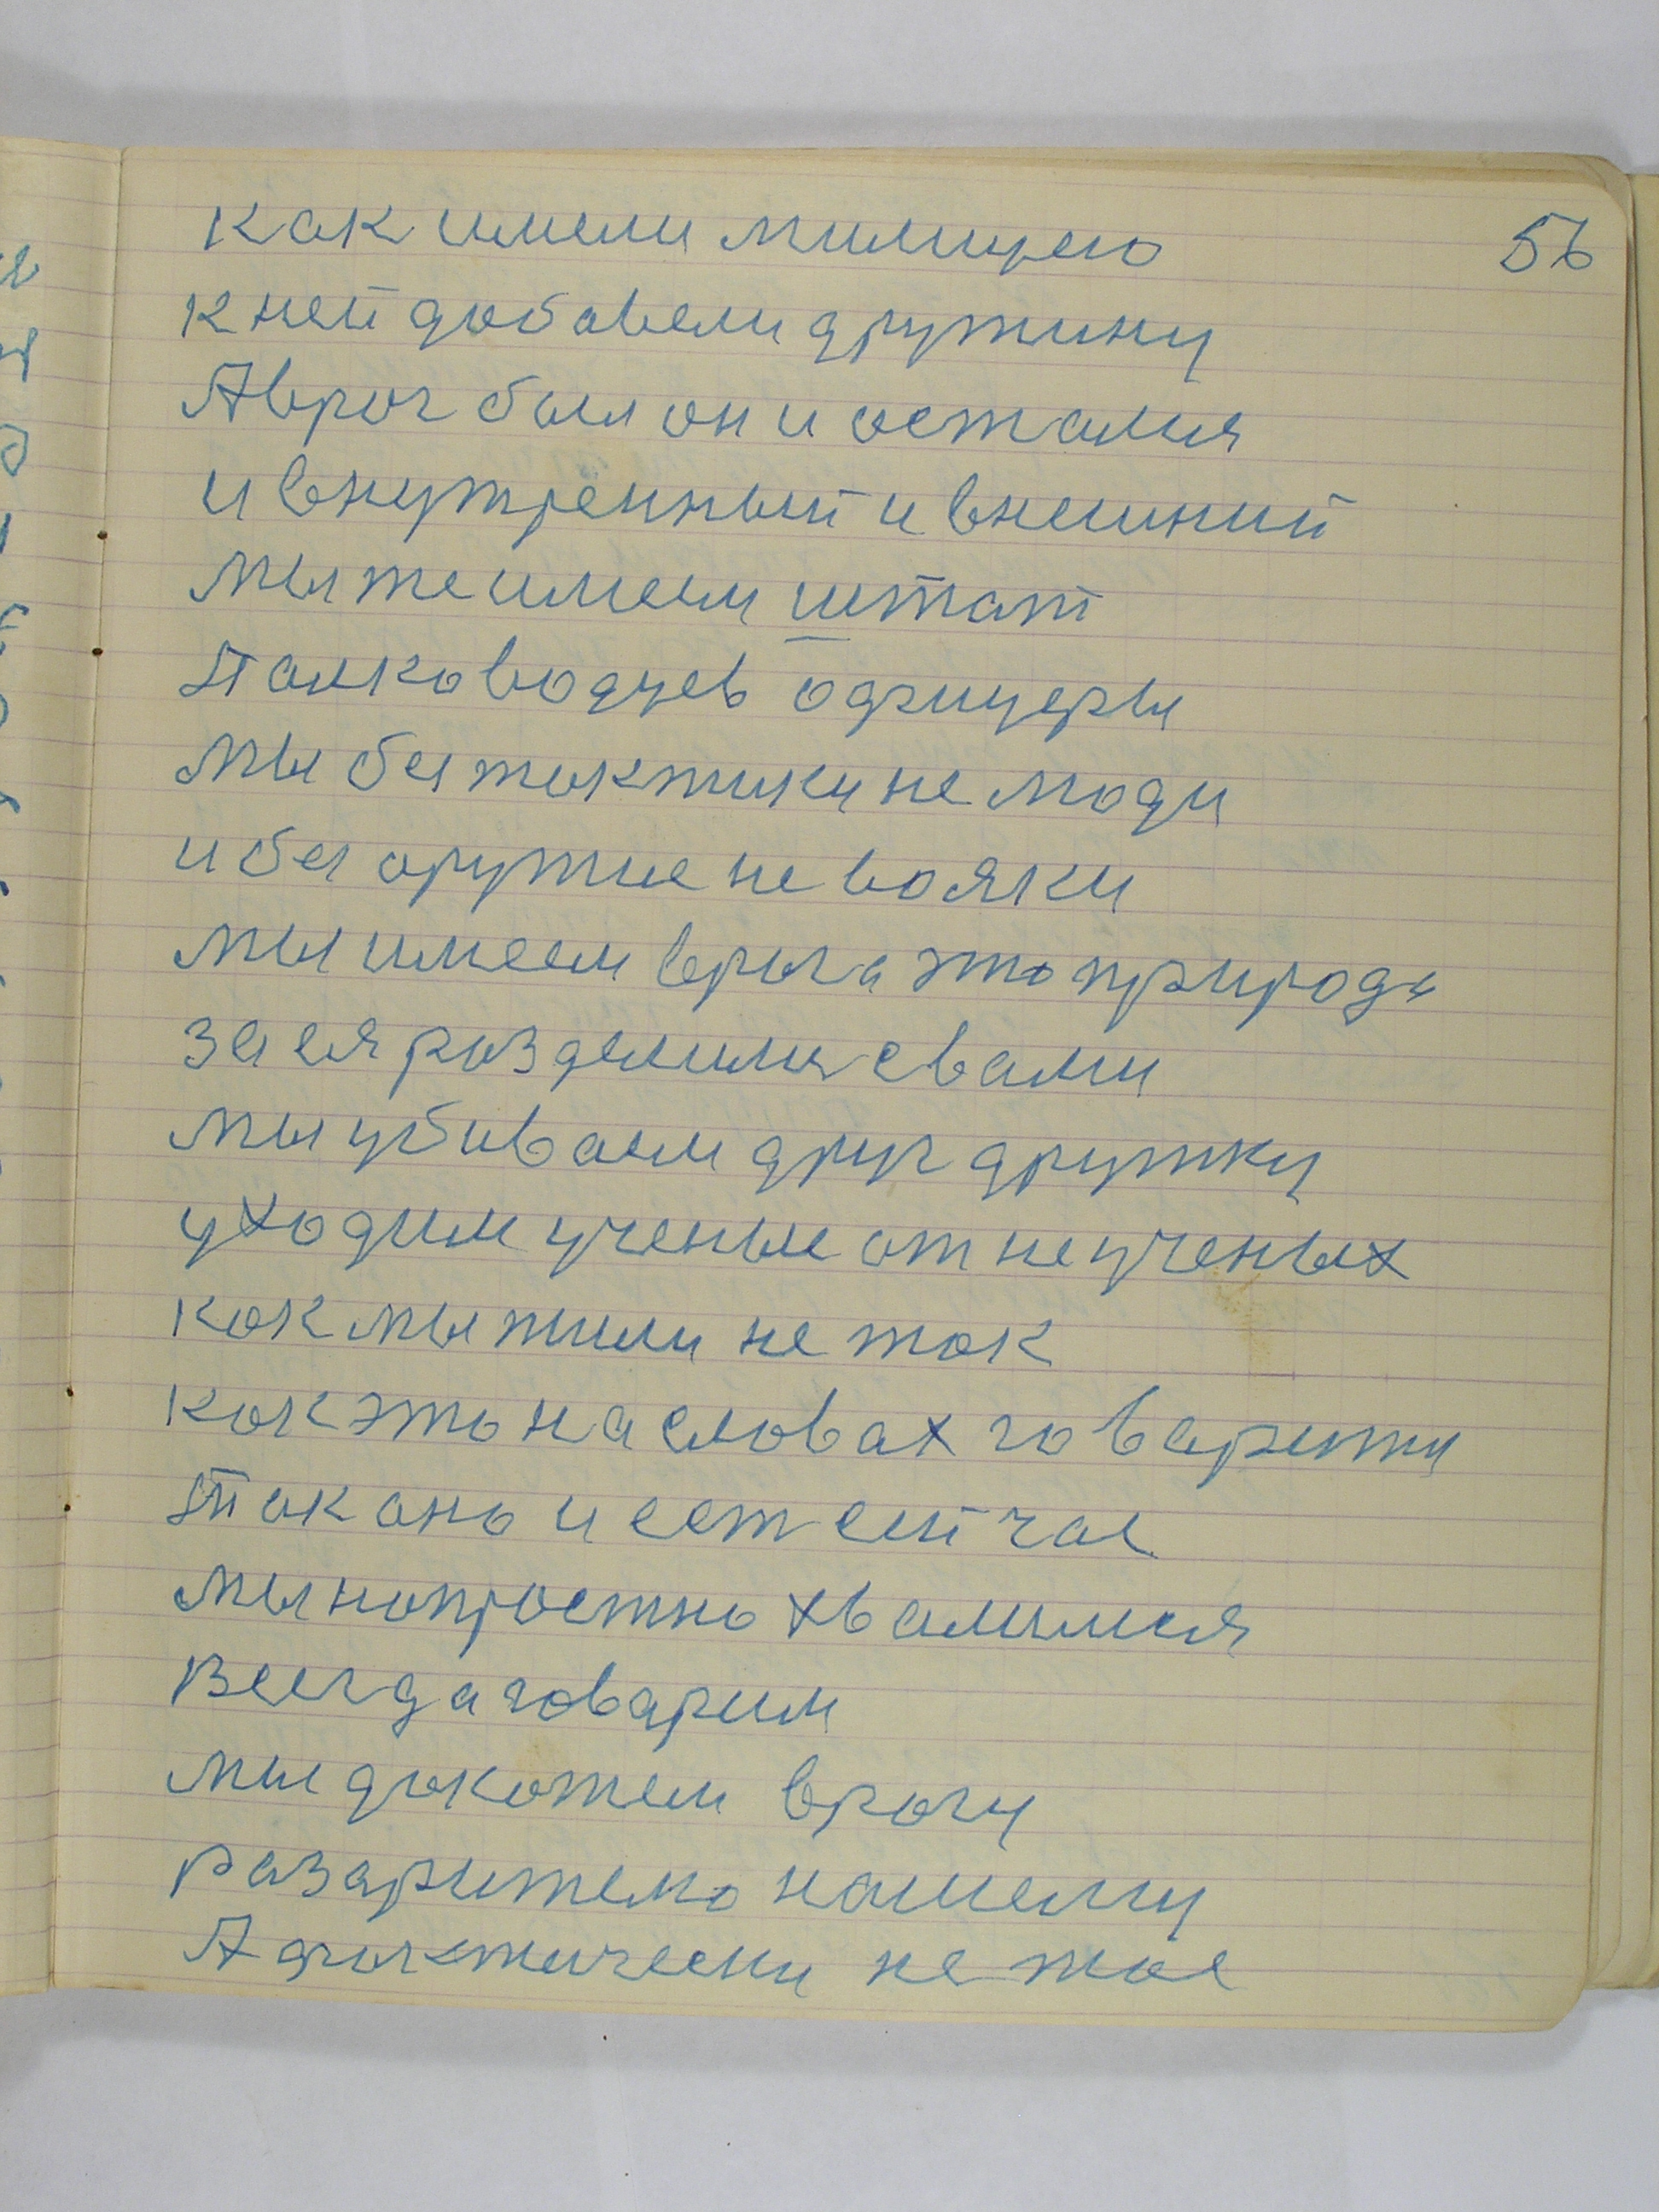 56
как имели милицею
к ней добавели дружину
А враг был он и осталия
и внутренный и внешний
мы же имеем штат
Палководцев офицеры
мы без тактики не люди
и без оружие не вояки
мы имеем врага это природа
за ея разделили с вами
мы убиваем друг дружку
уходим ученые от неученых
как мы жили не так
как это на словах говарити
Так оно и ест сейчас
мы напростно хвалимся
Всегда говарим
мы докажем врагу
разарителю нашему
А фактически не тое